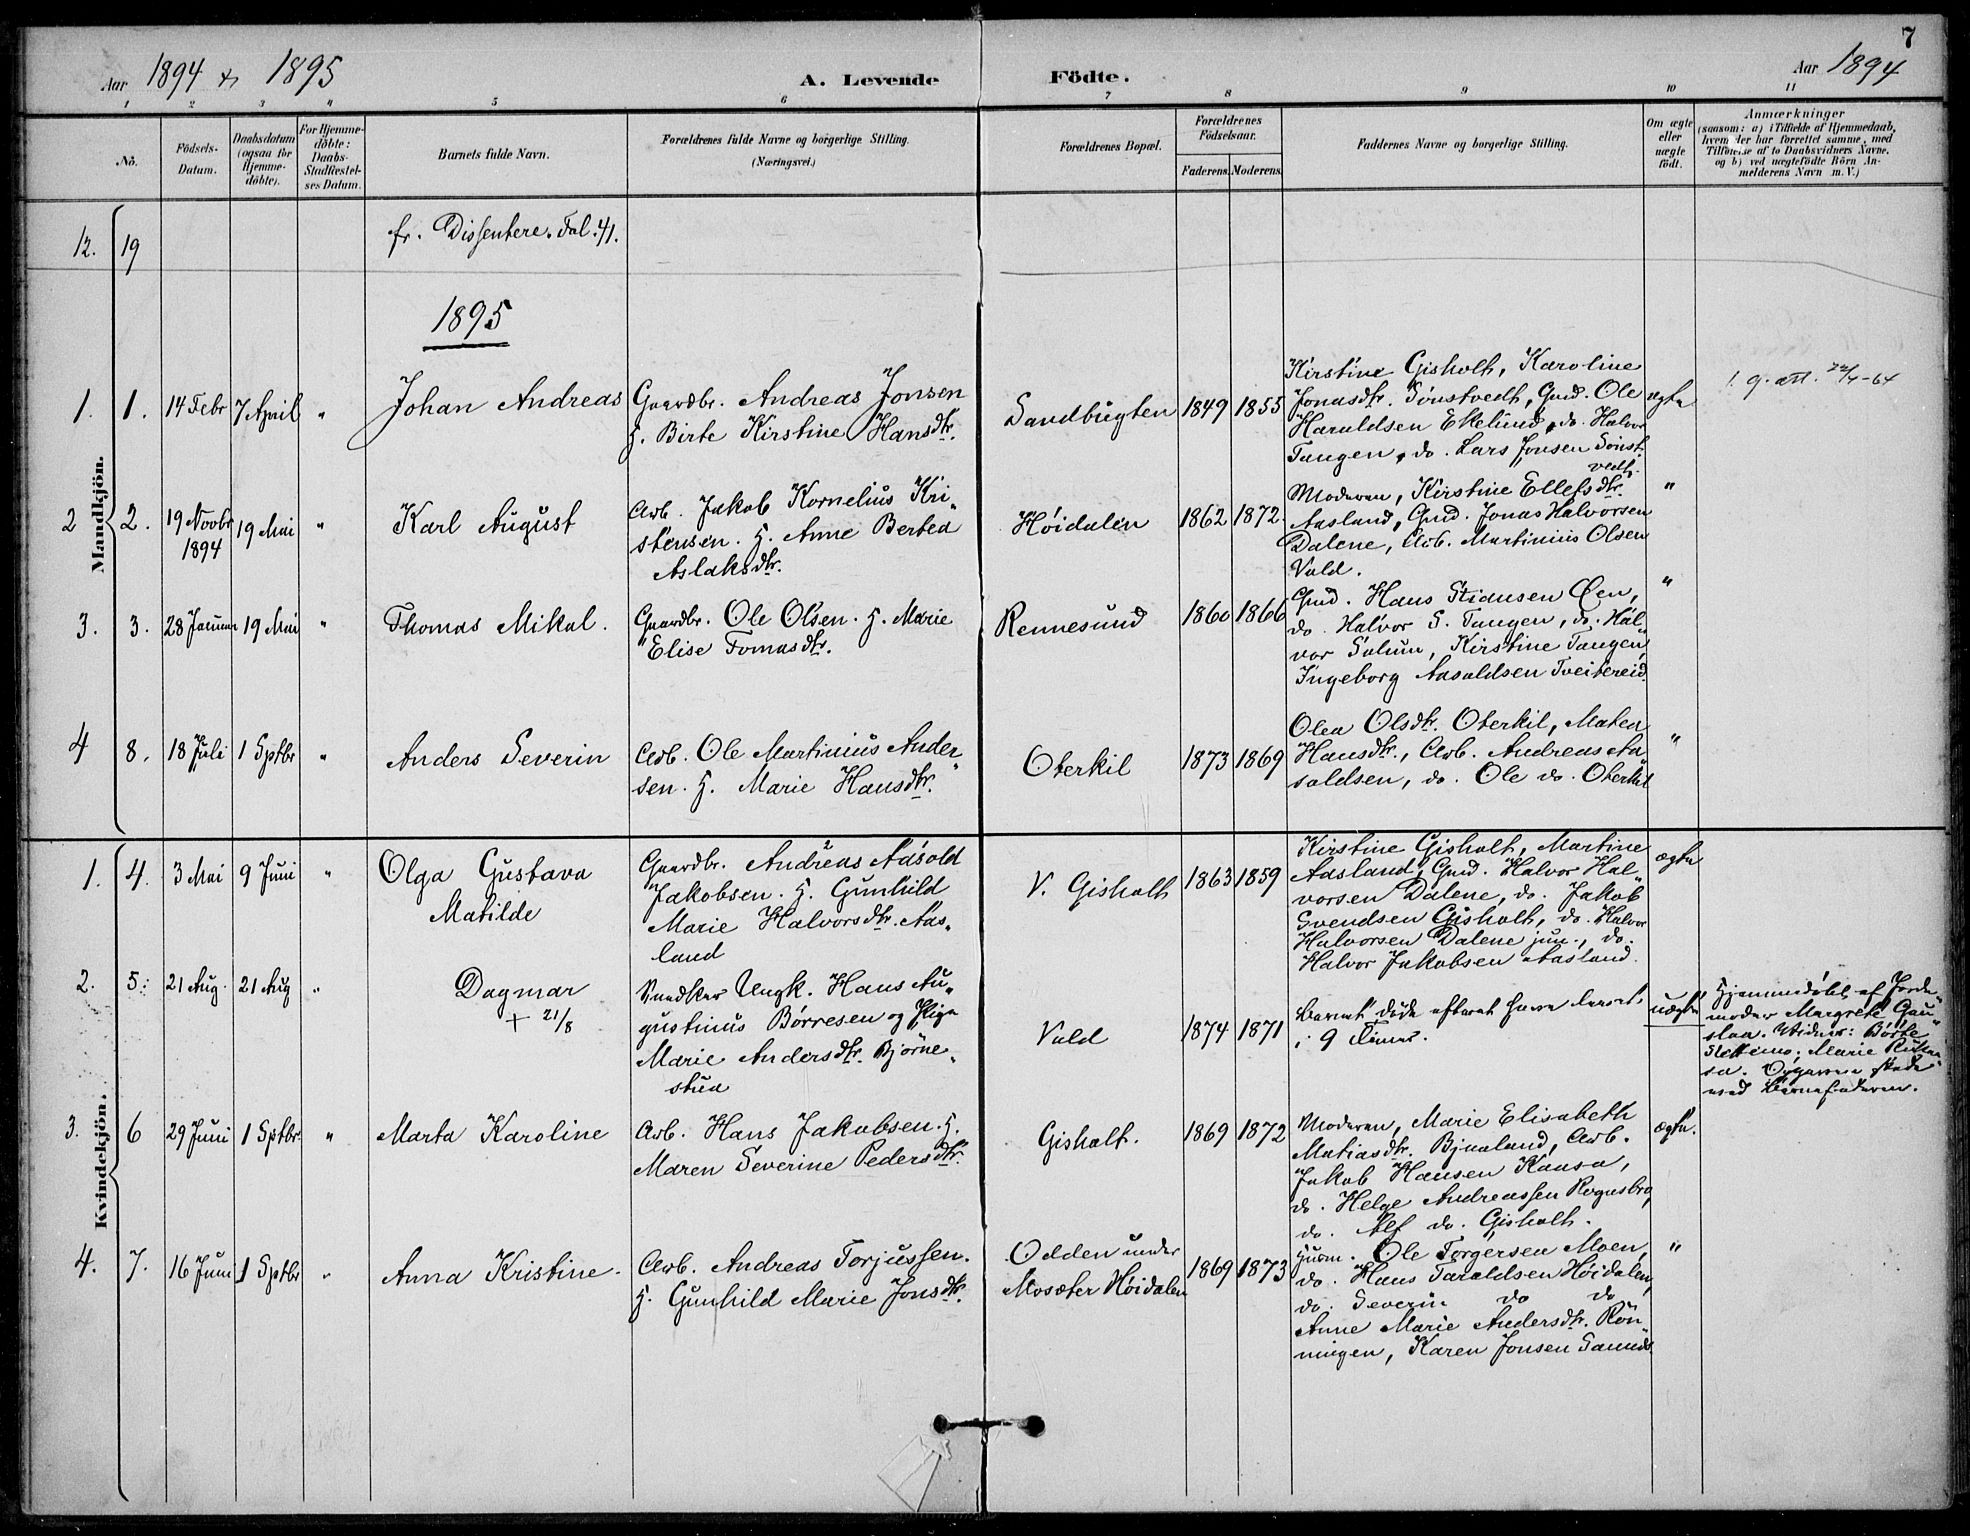 7
Aar 1894 & 1895
A. Levende Födte.
Aar 1894
1 2 3 4 5 6 7 8 9 10 11
No.
Födsels-Datum.
Daabsdatum (ogsaa for Hjemme-döbte).
For Hjemme-döbte: Daabs-Stadfæstel-ses Datum.
Barnets fulde Navn.
Forældrenes fulde Navne og borgerlige Stilling.
(Næringsvei.)
Forældrenes Bopæl.
Forældrenes Födselsaar.
Faderens. Moderens.
Faddernes Navne og borgerlige Stilling.
Om ægte eller uægte födt.
Anmærkninger
(saasom: a) i Tilfælde af Hjemmedaab,
hvem der har forrettet samme, med
Tilföielse af to Daabsvidners Navne.
og b) ved uægtefödte Börn An-
melderens Navn m. V.)
12. 19 fr. Dissentere. Fol. 41.
1895
Mandkjön.
1. 1. 14 Febr 7 April "
Johan Andreas
Gaardbr. Andreas Jonsen
H. Birte Kirstine Hansdtr.
Sandbugten 1849 1855
Kirstine Gisholt, Karoline
Jonasdtr. Sönstvedt, Gmd. Ole
Haraldsen Ekelund, do. Halvor
Tangen, do. Lars Jonsen Sönst-
vedt.
ægte
22/4-64
2 2. 19 Novbr 1894 19 Mai "
Karl August
Arb. Jakob Kornelius Kri-
stensen. H. Anne Bertea
Aslaksdtr.
Höidalen 1862 1872.
Moderen, Kirstine Ellefsdtr.
Aasland, Gmd. Jonas Halvorsen
Dalene, Arb. Martinius Olsen
Vald.
"
3. 3. 28 Januar 19 Mai "
Thomas Mikal.
Gaardbr. Ole Olsen. H. Marie
Elise Tomasdtr.
Rennesund 1860 1866
Gmd. Hans Stiansen Öen,
do. Halvor S. Tangen, do. Hal-
vor Solum, Kirstine Tangen,
Ingeborg Aasoldsen Tveitereid.
"
4 8. 18 Juli 1 Sptbr "
Anders Severin
Arb. Ole Martinius Ander-
sen. H. Marie Hansdtr.
Oterkil 1873 1869
Olea Olsdtr. Oterkil, Matea
Hansdtr., Arb. Andreas Aa-
soldsen, do. Ole do. Oterkil
"
Kvindekjön.
1. 4. 3 Mai 9 Juni "
Olga Gustava
Matilde
Gaardbr. Andreas Aasold
Jakobsen. H. Gunhild
Marie Halvorsdtr. Aas-
land
V. Gisholt 1863 1859
Kirstine Gisholt, Martine
Aasland, Gmd. Halvor Hal-
vorsen Dalene, do. Jakob
Svendsen Gisholt, do. Halvor
Halvorsen Dalene jun., do.
Halvor Jakobsen Aasland.
ægte
2. 5. 21 Aug. 21 Aug "
Dagmar
+ 21/8
Snedker Ungk. Hans Au-
gustinus Börresen og Pige
Marie Andersdtr. Björne-
stua
Vald 1874 1871
Barnet döde efter at have levet
i 9 Timer.
uægte
Hjemmedöbt af Jorde-
moder Margrete Gau-
staa. Vidner: Börte
Slettemo, Marie
med Barnefaderen.
3. 6 29 Juni 1 Sptbr. "
Marta Karoline
Arb. Hans Jakobsen. H.
Maren Severine Pedersdtr.
Gisholt. 1869 1872
Moderen, Marie Elisabeth
Matiasdtr. Bjualand, Arb.
Jakob Hansen Kausa,
do. Helge Andreassen Rognsbro,
do. Alf do. Gisholt.
ægte.
4. 7. 16 Juni 1 Sptbr "
Anna Kristine.
Arb. Andreas Torjussen.
H. Gunhild Marie Jonsdtr.
Odden under
Mosæter Höidalen
1869 1873
Gaardm. Ole Torgersen Moen,
do. Hans Taraldsen Höidalen,
do. Severin do do
Anne Marie Andersdtr. Rön-
ningen, Karen Jonsen
"